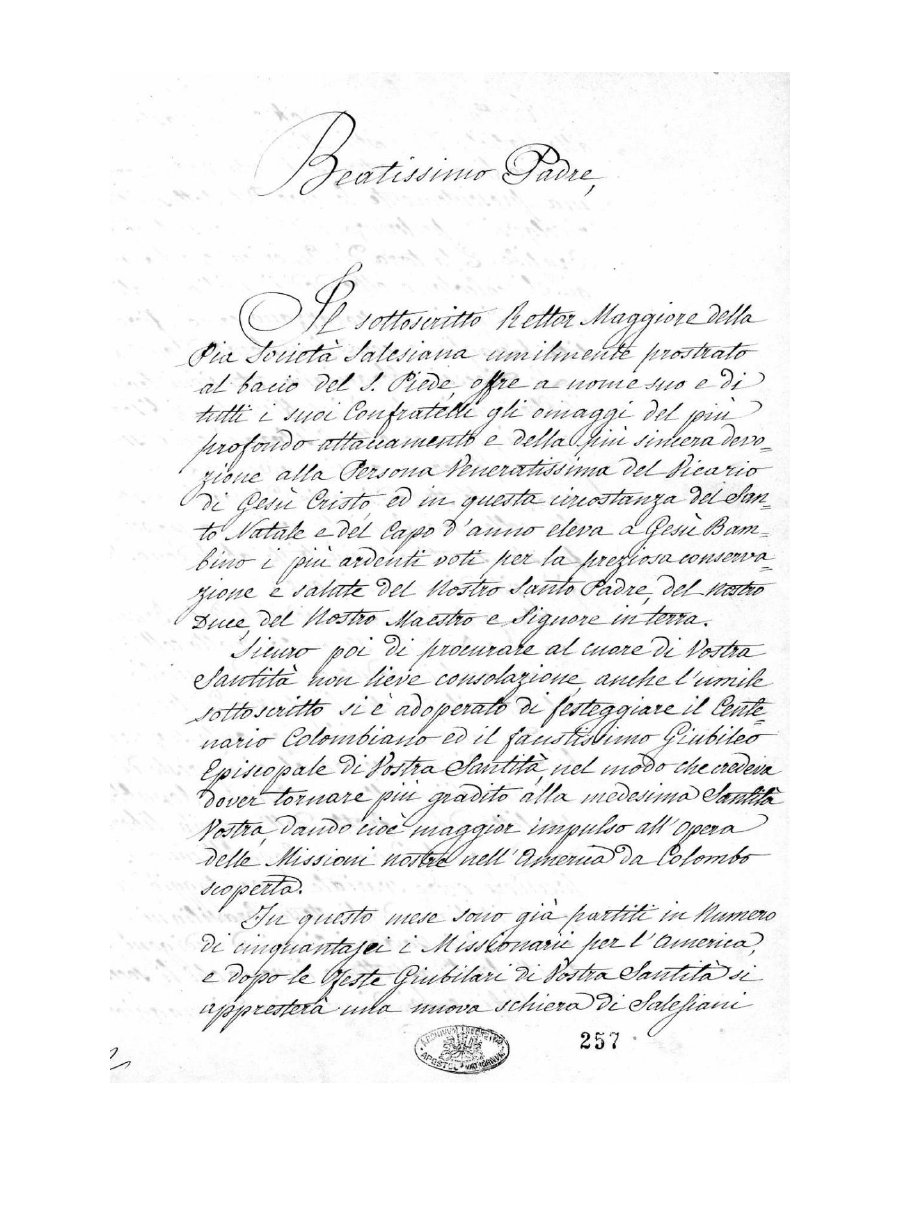 Beatissimo Padre,
Il sottoscritto Rettor Maggiore della
Pia Società Salesiana umilmente prostrato
al bacio del S. Piede, offre a nome suo e di
tutti i suoi Confratelli gli omaggi del più
profondo attaccamento e della più sincera devo=
zione alla Persona Veneratissima del Vicario
di Gesù Cristo, ed in questa circostanza del San=
to Natale e del Capo d'anno eleva a Gesù Bam=
bino i più ardenti voti per la preziosa conserva=
zione e salute del Nostro Santo Padre, del nostro
Duce, del Nostro Maestro e Signore in terra.
Sicuro poi di procurare al cuore di Vostra
Santità non lieve consolazione, anche l'umile
sottoscritto si è adoperato di festeggiare il Cente=
nario Colombiano ed il faustissimo Giubileo
Episcopale di Vostra Santità, nel modo che credeva
dover tornare più gradito alla medesima Santità
Vostra, dando cioè maggior impulso all'Opera
delle Missioni nostre nell'America da Colombo
scoperta.
In questo mese sono già partiti in Numero
di cinquantasei i Missionarii per l'America,
e dopo le Feste Giubilari di Vostra Santità si
appresterà una nuova schiera di Salesiani
257